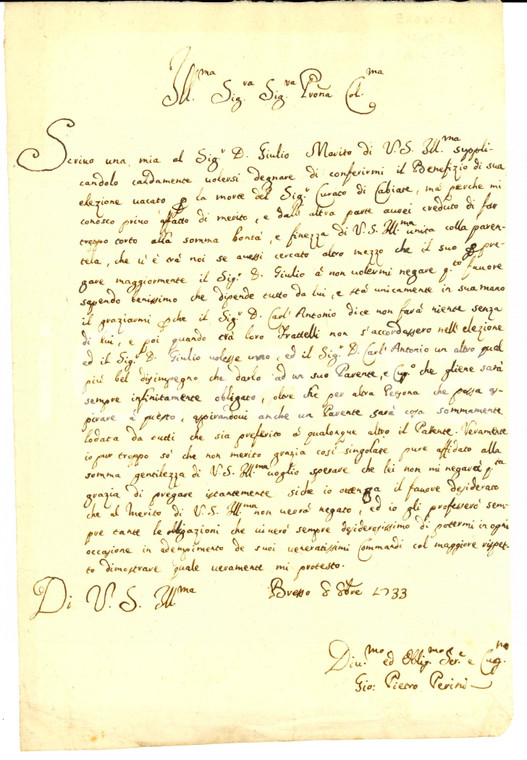 Ill.ma Sig.ra Sig.ra Prona Col.ma
Scrivo una mia al Sig.r D. Giulio Marito di V. S. Ill.ma suppli-
candolo caldamente volersi degnare di conferirmi il Benefizio di sua
elezione vacato p la morte del Sig.r Curato di Cabiate, mà perche mi
conosco privo affatto di merito, e dall'altra parte avrei creduto di far
troppo torto alla somma bontà, e finezza di V. S. Ill.ma unita colla paren-
tela, che vi è trà noi se avessi cercato altro mezzo che il suo p pre-
gare maggiormente il Sig.r D. Giulio à non volermi negare q.to favore
sapendo benissimo che dipende tutto da lui, e stà unicamente in sua mano
il graziarmi pche il Sig.r D. Carl'Antonio dice non farà niente senza
di lui, e poi quando trà loro Frattelli non s'accordassero nell'elezione
ed il Sig.r D. Giulio volesse uno, ed il Sig.r D. Carl'Antonio un altro qual
più bel disimpegno che darlo ad un suo Parente, e Cug.o che gliene sarà
sempre infinitamente obligato, oltre che per altra Persona che possa as-
pirare à questo, aspirandovi anche un Parente sarà cosa sommamente
lodata da tutti che sia preferito à qualonque altro il Parente. Veramente
io pur troppo sò che non merito grazia così singolare, pure affidato alla
somma gentilezza di V. S. Ill.ma voglio sperare che lei non mi negarà q.ta
grazia di pregare istantemente siche io ottenga il favore desiderato
che al Merito di V. S. Ill.ma non verrà negato, ed io gli professerò sem-
pre tante le obligazioni che viverò sempre desiderosissimo di pottermi in ogni
occasione in adempimento de suoi veneratissimi Commandi col maggiore rispet-
to dimostrare quale veramente mi protesto.
Di V. S. Ill.ma
Bresso 8 8bre 1733
Div.mo ed Oblig.mo Ser.e e Cug.no
Gio: Pietro Perini